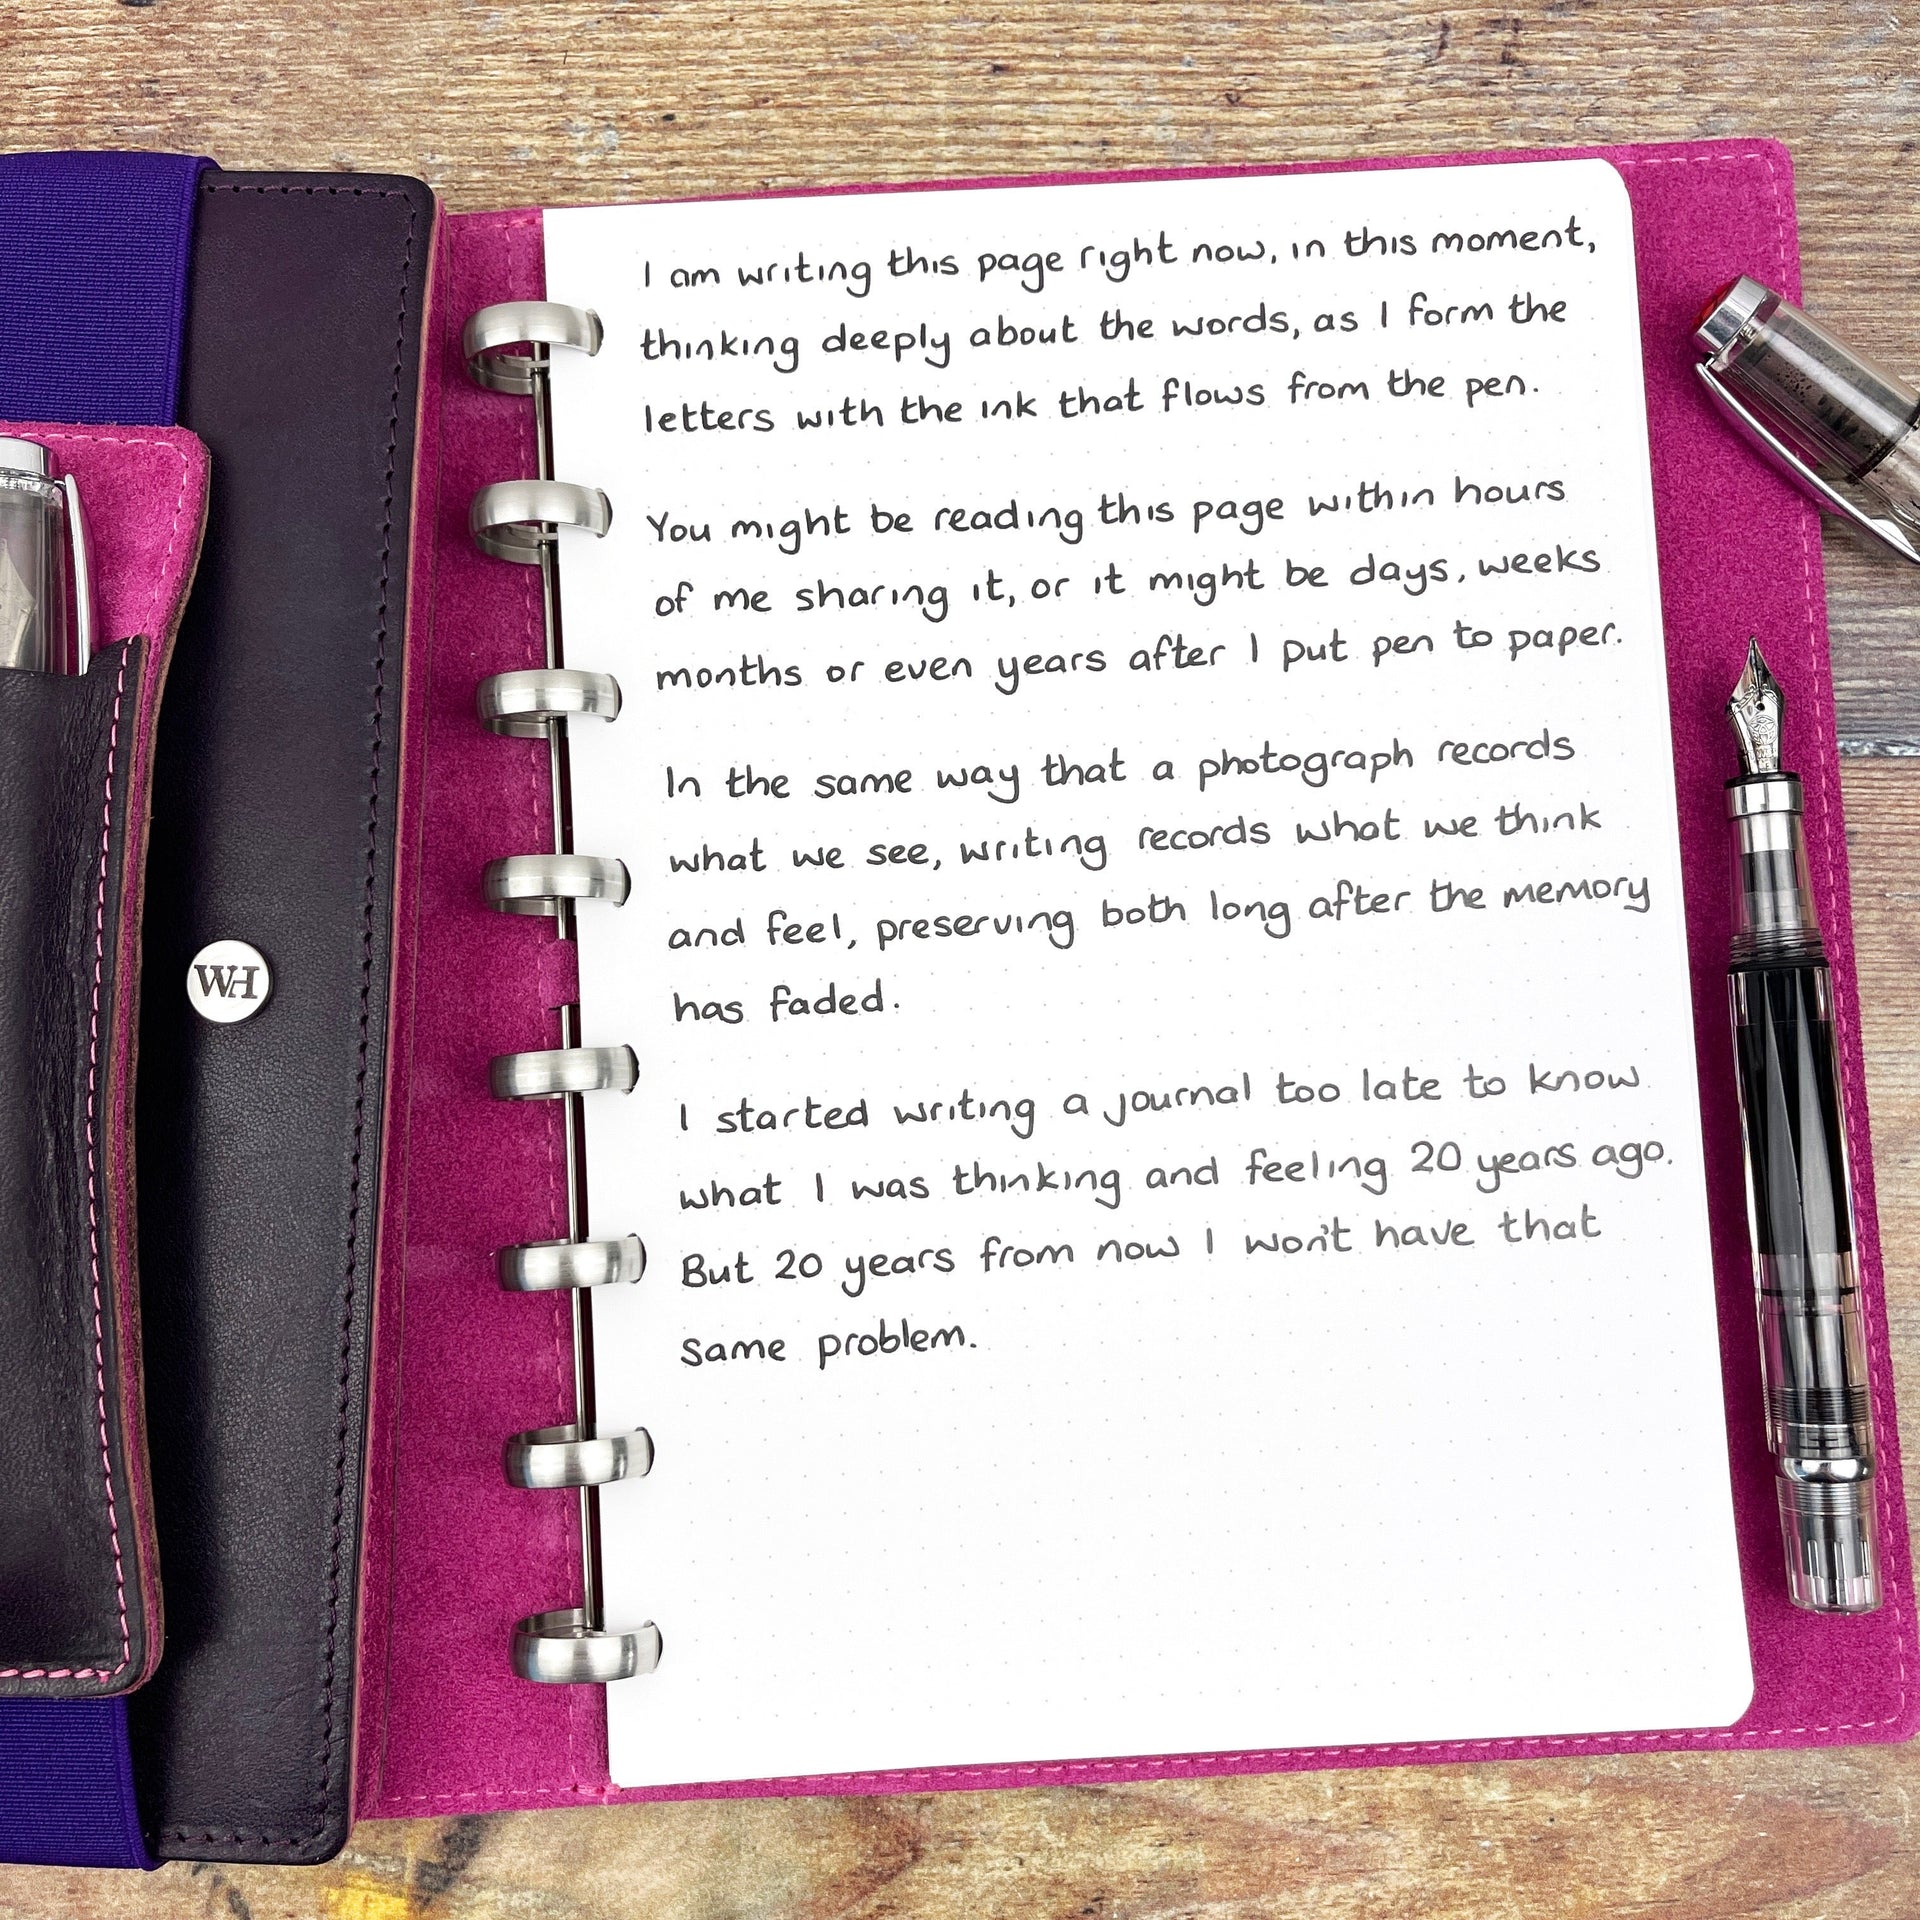 I am writing this page right now, in this moment,
thinking deeply about the words, as I form the
letters with the ink that flows from the pen.
You might be reading this page within hours
of me sharing it, or it might be days, weeks
months or even years after I put pen to paper.
In the same way that a photograph records
what we see, writing records what we think
and feel, preserving both long after the memory
has faded.
I started writing a journal too late to know
what I was thinking and feeling 20 years ago.
But 20 years from now I won't have that
same problem.
WH